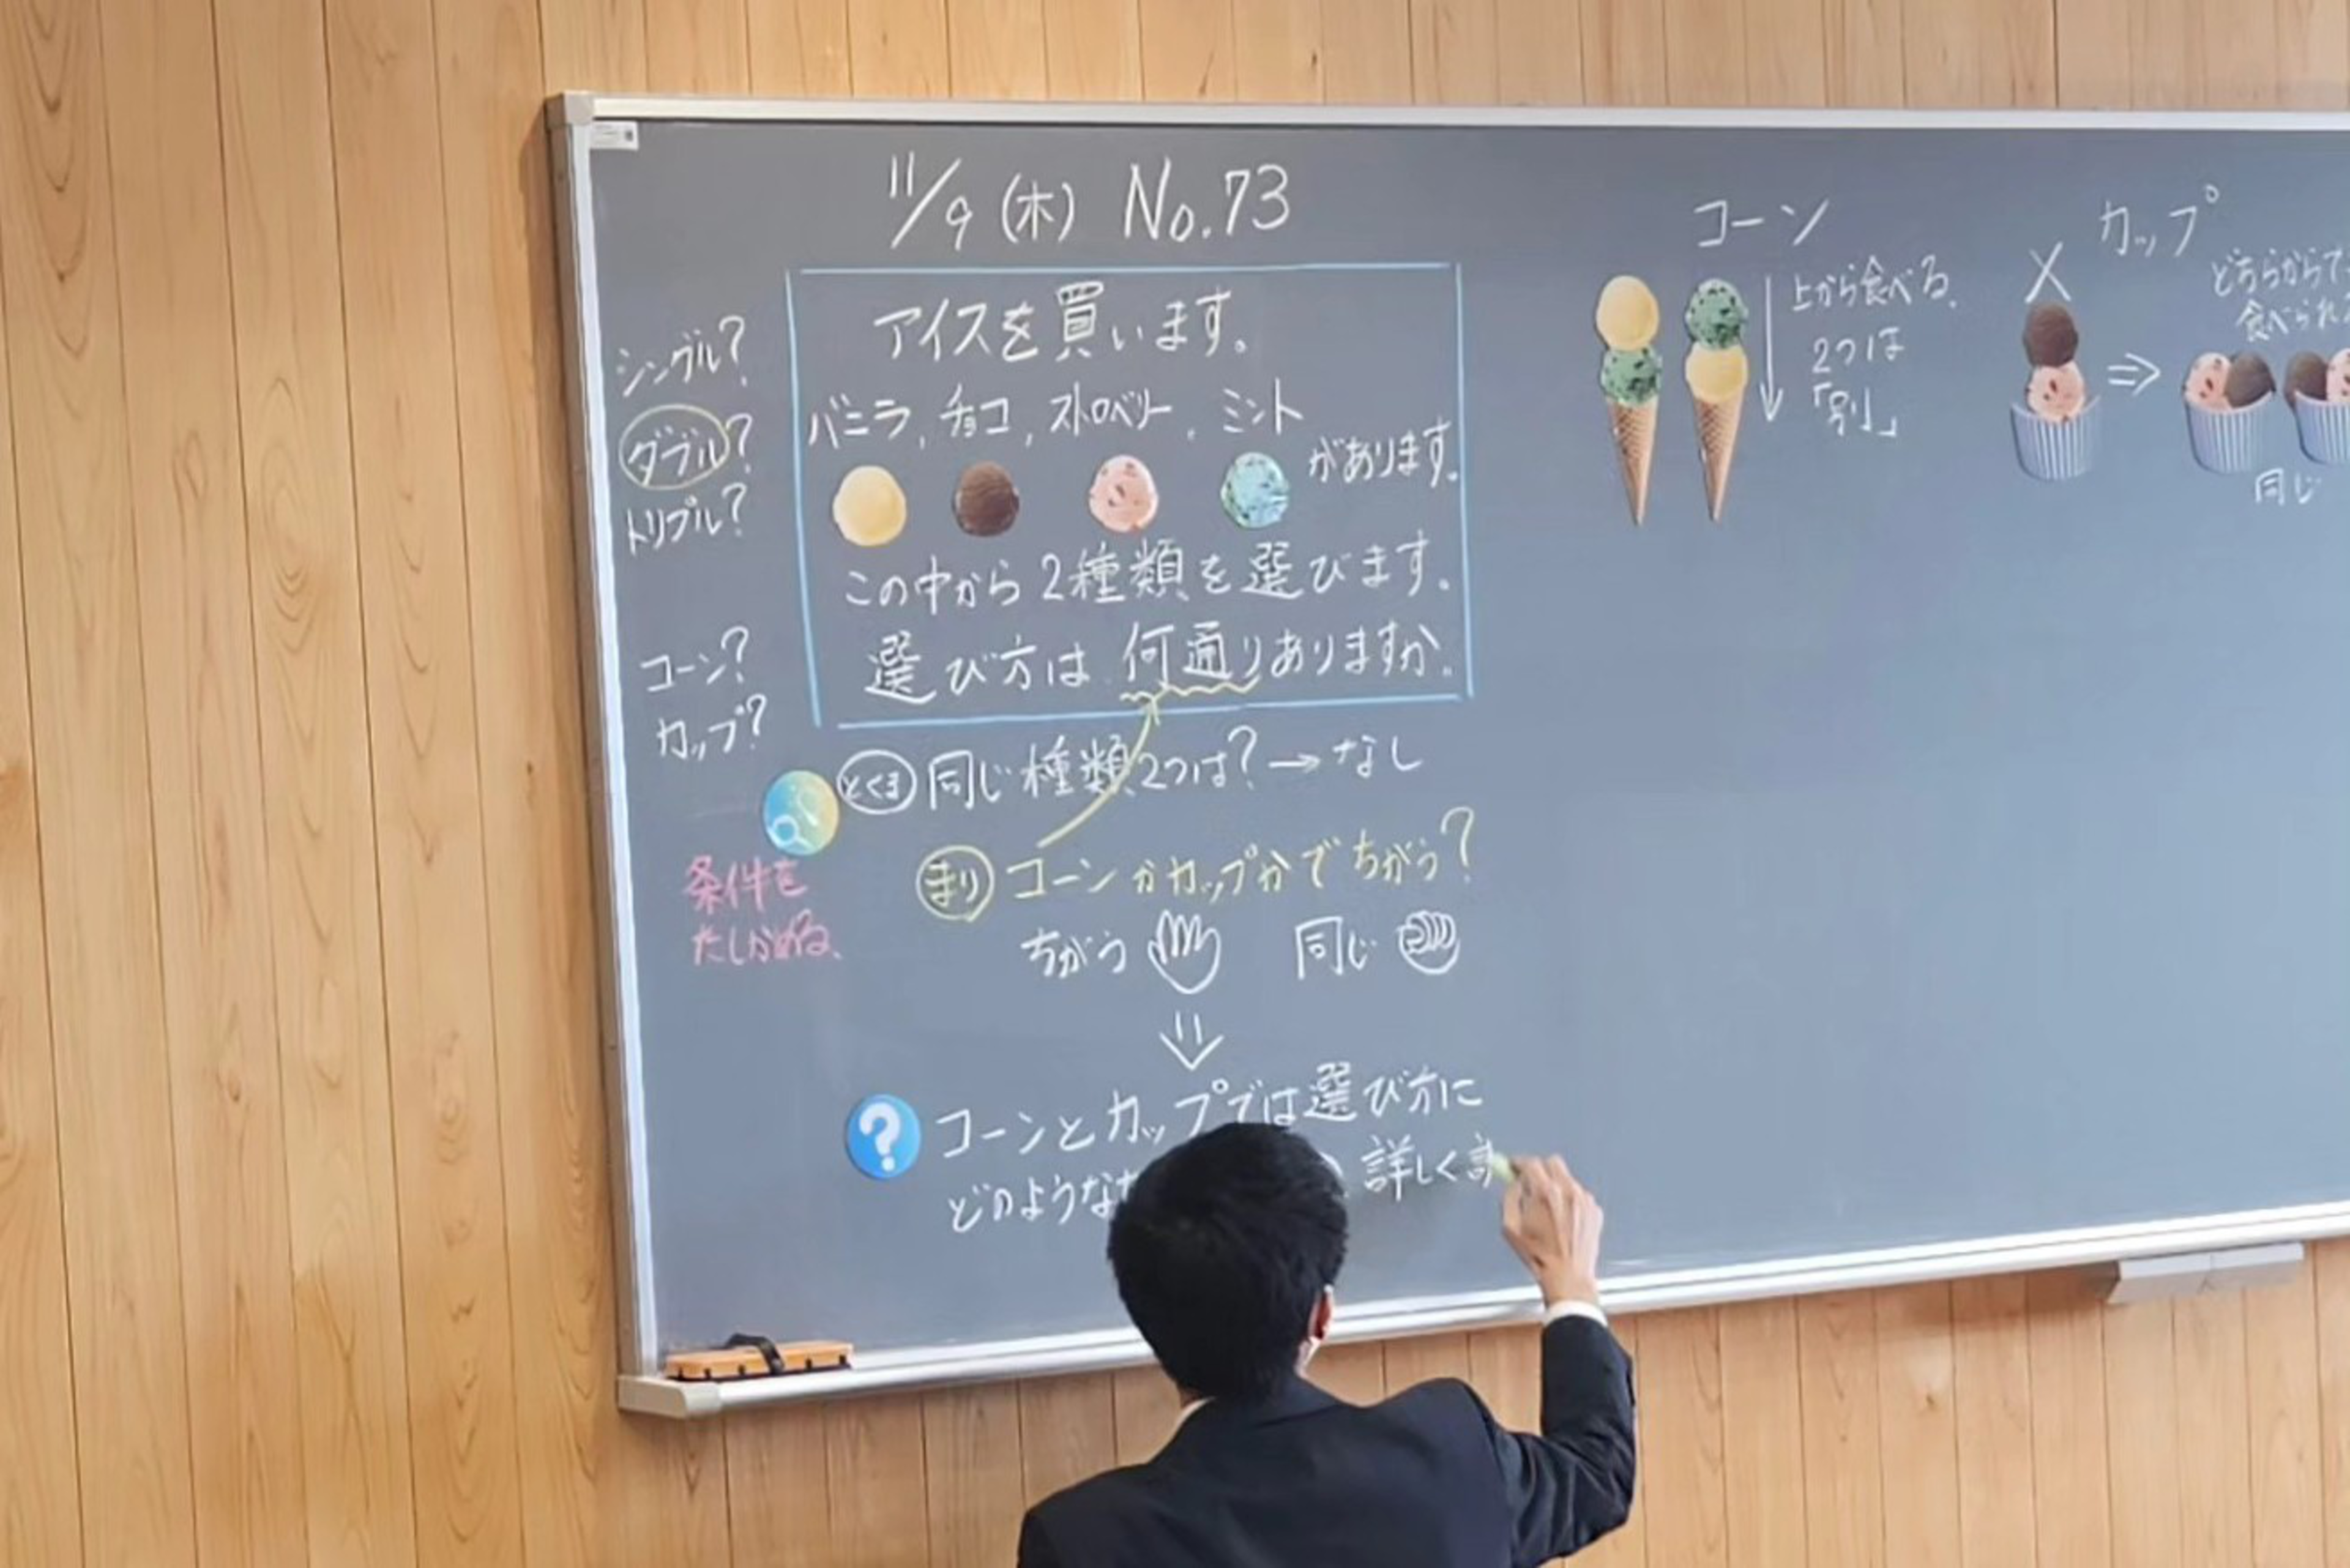 11/9 (木) No.73
アイスを買います。
バニラ, チョコ, ストロベリー, ミント
があります。
この中から2種類を選びます。
選び方は何通りありますか。
シングル?
ダブル?
トリプル?
コーン?
カップ?
とくま 同じ種類2つは?→なし
条件を
たしかめる、
まり コーンかカップかでちがう?
ちがう 同じ
⇓
? コーンとカップでは選び方に
どのような
詳しく
コーン
上から食べる、
2つは
「別」
カップ
×
⇒
どちらからで
食べられ
同じ